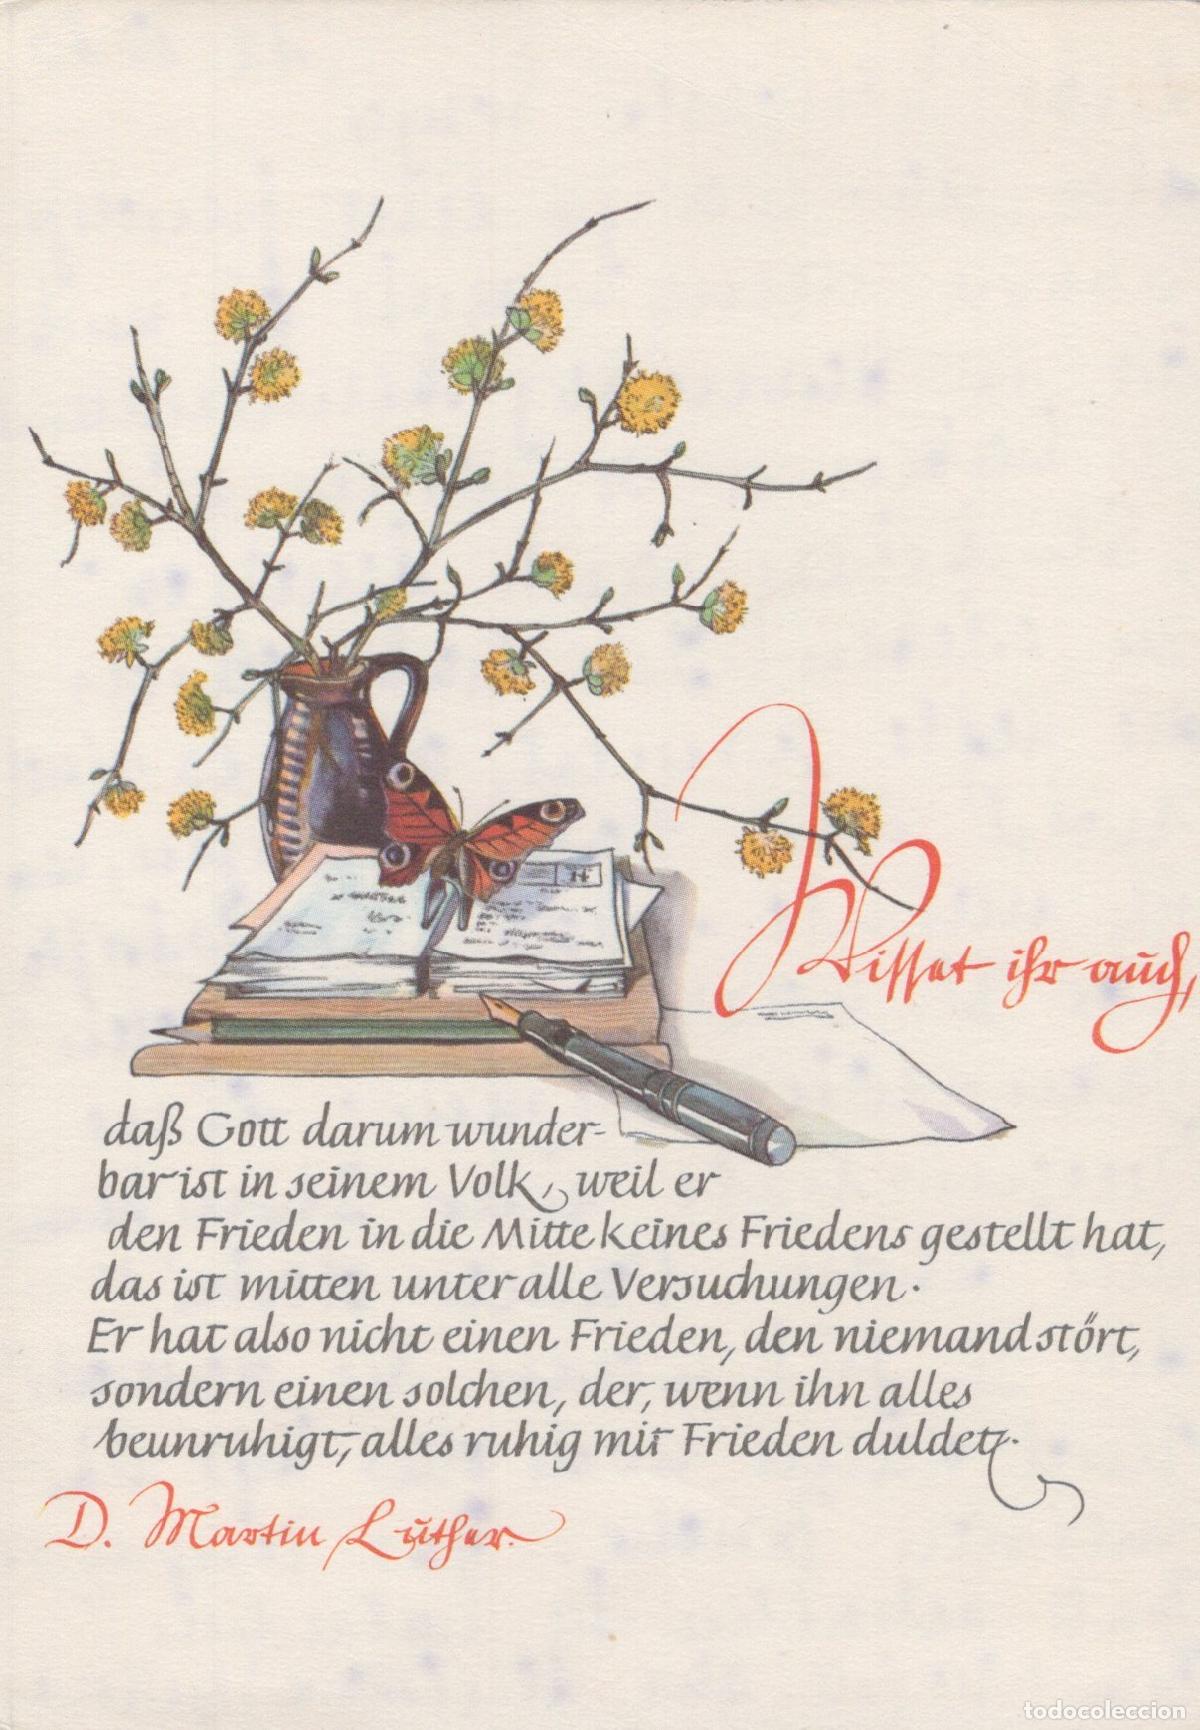 Wisset ihr auch,
daß Gott darum wunder-
bar ist in seinem Volk, weil er
den Frieden in die Mitte keines Friedens gestellt hat,
das ist mitten unter alle Versuchungen.
Er hat also nicht einen Frieden, den niemand stört,
sondern einen solchen, der, wenn ihn alles
beunruhigt, alles ruhig mit Frieden duldet.
D. Martin Luther.
todocoleccion